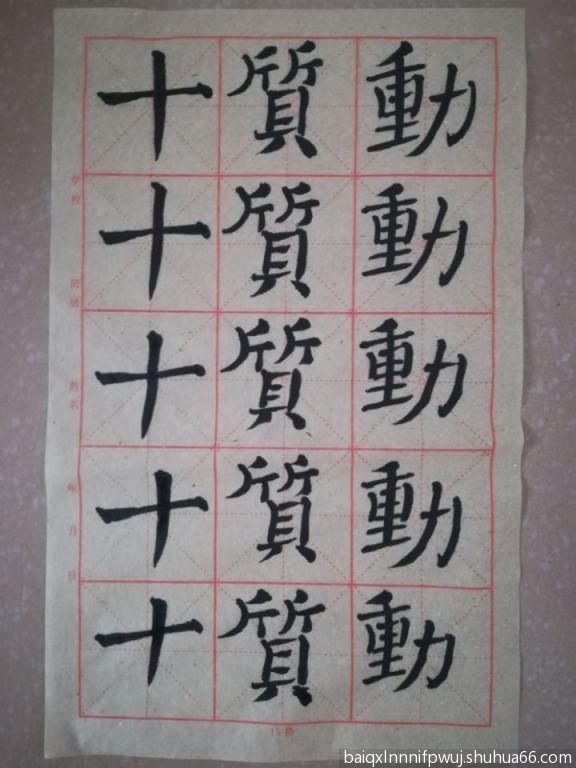 動動動動動
質質質質質
十十十十十
年 月 日
baiqxlnnnifpwuj.shuhua66.com